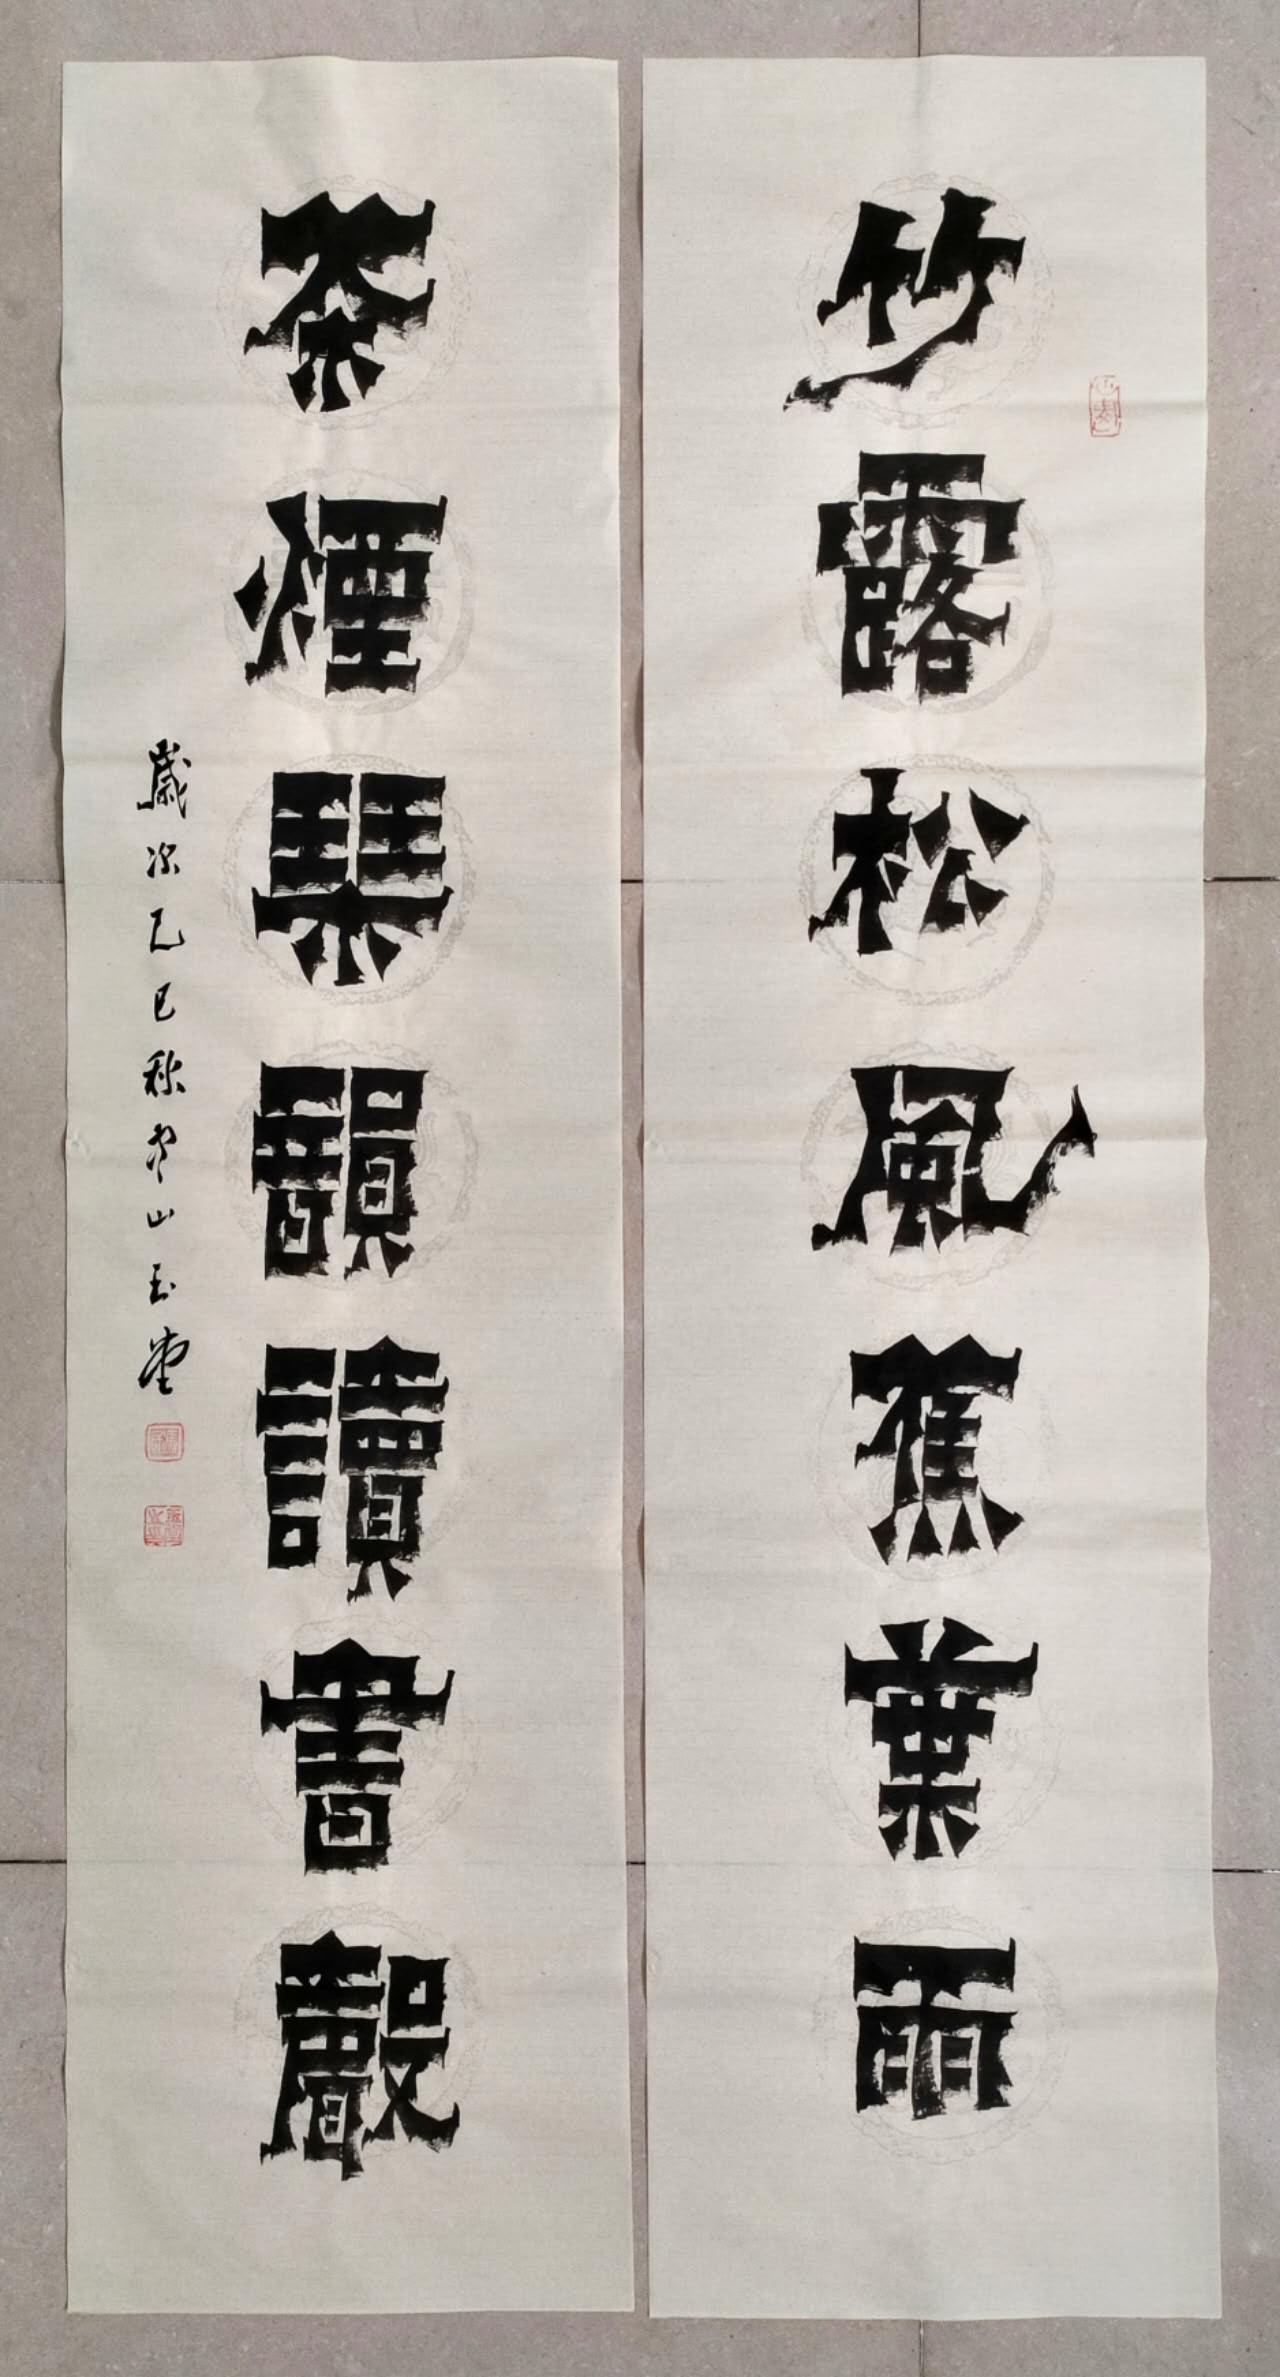 竹露松風蕉葉雨
茶煙琹韻讀書聲
歲次乙巳秋 山玉堂